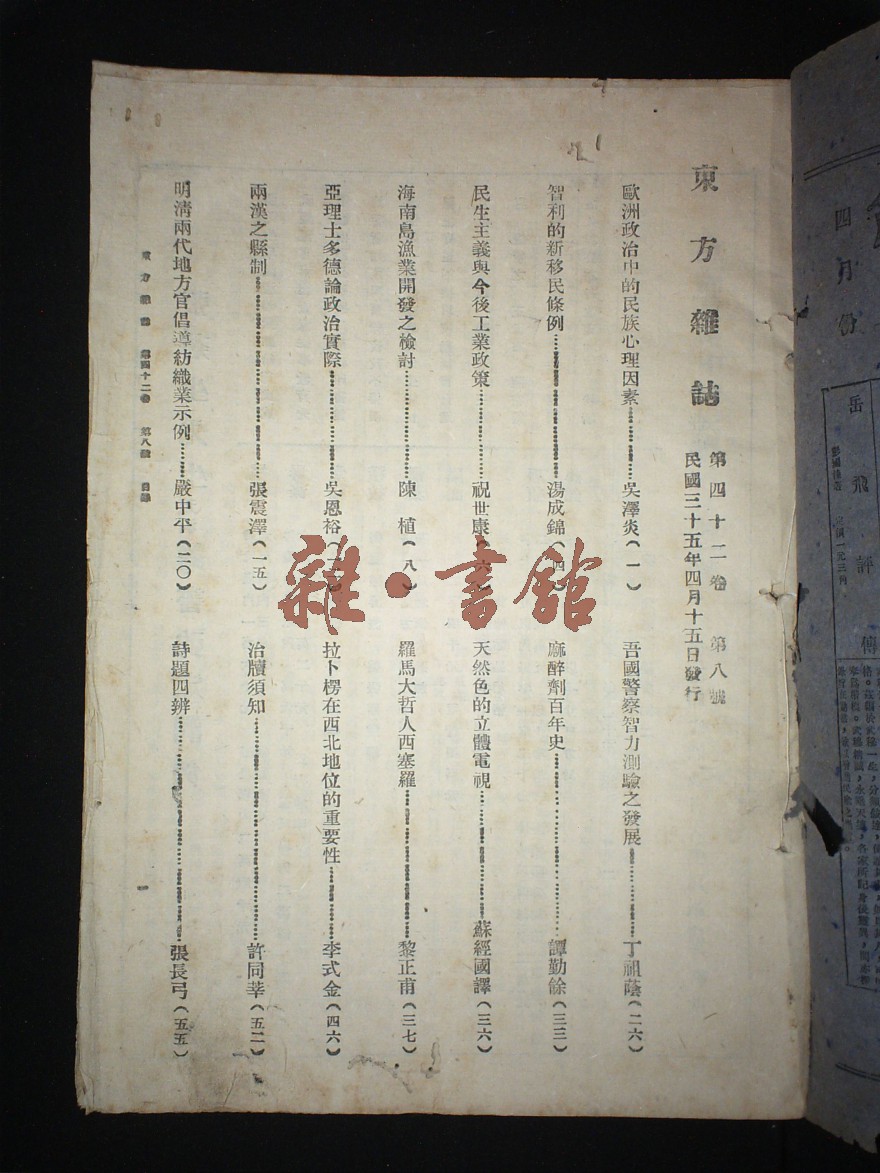 東方雜誌
第四十二卷 第八號
民國三十五年四月十五日發行
歐洲政治中的民族心理因素……吳澤炎(一)
智利的新移民條例……湯成錦(四)
民生主義與今後工業政策……祝世康(六)
海南島漁業開發之檢討……陳 植(八)
亞理士多德論政治實際……吳恩裕
兩漢之縣制……張震澤(一五)
明清兩代地方官倡導紡織業示例……嚴中平(二〇)
吾國警察智力測驗之發展……丁祖蔭(二六)
麻醉劑百年史……譚勤餘(三三)
天然色的立體電視……蘇經國譯(三六)
羅馬大哲人西塞羅……黎正甫(三七)
拉卜楞在西北地位的重要性……李式金(四六)
治牘須知……許同莘(五二)
詩題四辨……張長弓(五五)
東方雜誌 第四十二卷 第八號 目錄
雜·書館
四月份
岳飛評傳